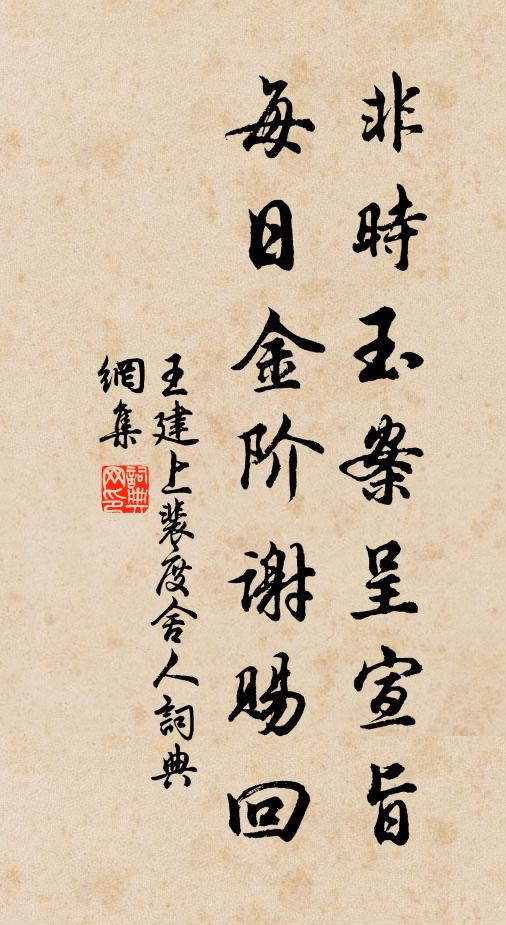 非時玉案呈宣旨
每日金阶谢賜回
王建上裴度舍人詞典
網集
詞典网印